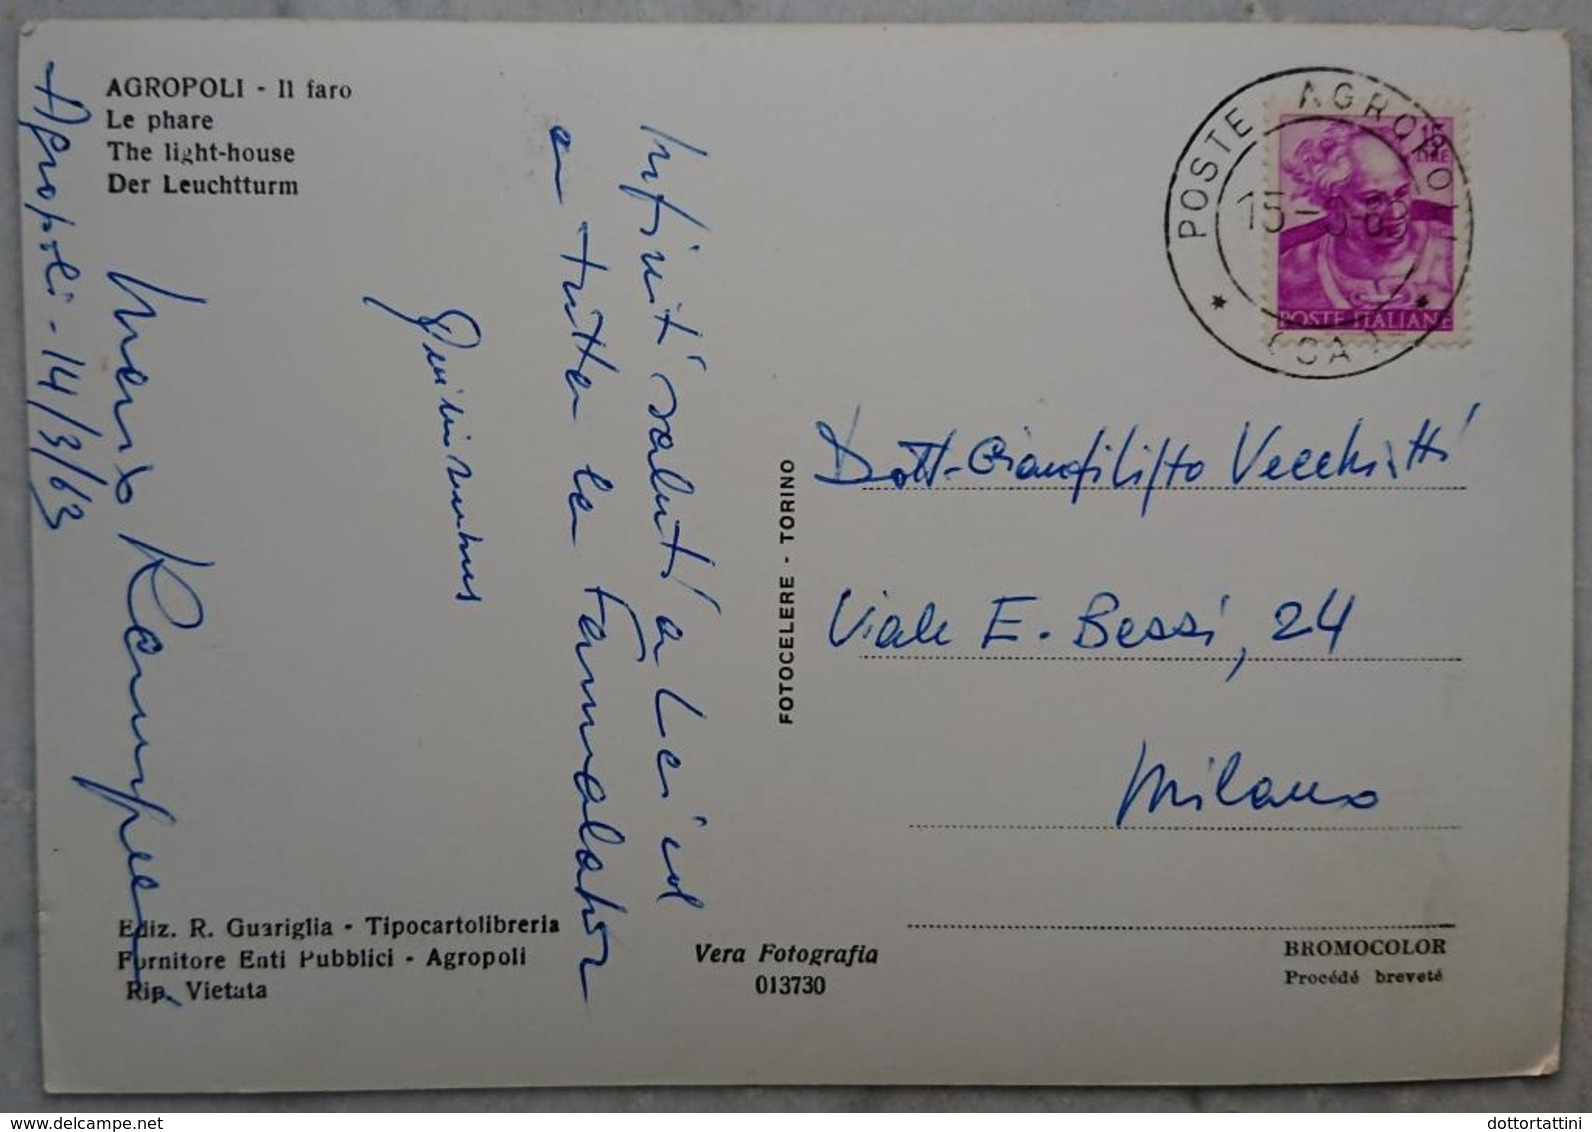 AGROPOLI - Il faro
Le phare
The light-house
Der Leuchtturm
Agropoli - 14/3/63
Infiniti saluti a Lei ed
a tutti la
Mario
POSTE AGROPOLI
15-3-63
(SA)
15
LIRE
POSTE ITALIANE
Dott. Gianfilippo Vecchietti
Viale E. Bessi, 24
Milano
FOTOCELERE - TORINO
Ediz. R. Guariglia - Tipocartolibreria
Fornitore Enti Pubblici - Agropoli
Rip. Vietata
Vera Fotografia
013730
BROMOCOLOR
Procédé breveté
dottortattini